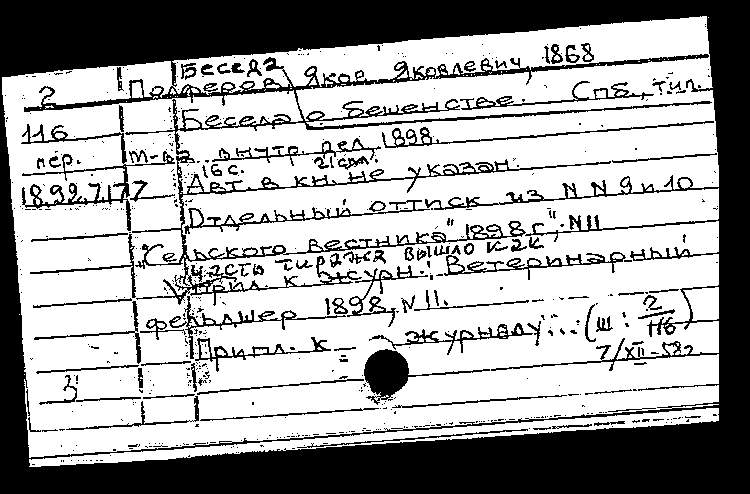 Беседа
2 Полферов, Яков Яковлевич, 1868
Беседа о бешенстве. Спб., тип.
116
пер. т-ва внутр. дел, 1898.
16 с. 21 см.
18.92.7.177 Авт. в кн. не указан.
"Отдельный оттиск из N N 9 и 10
"Сельского вестника" 1898 г.", N 11
часть тиража вышло как
V прил. к журн.: Ветеринарный
фельдшер 1898, N 11.
Припл. к журналу... (Ш: 2/116)
7/XII-58г